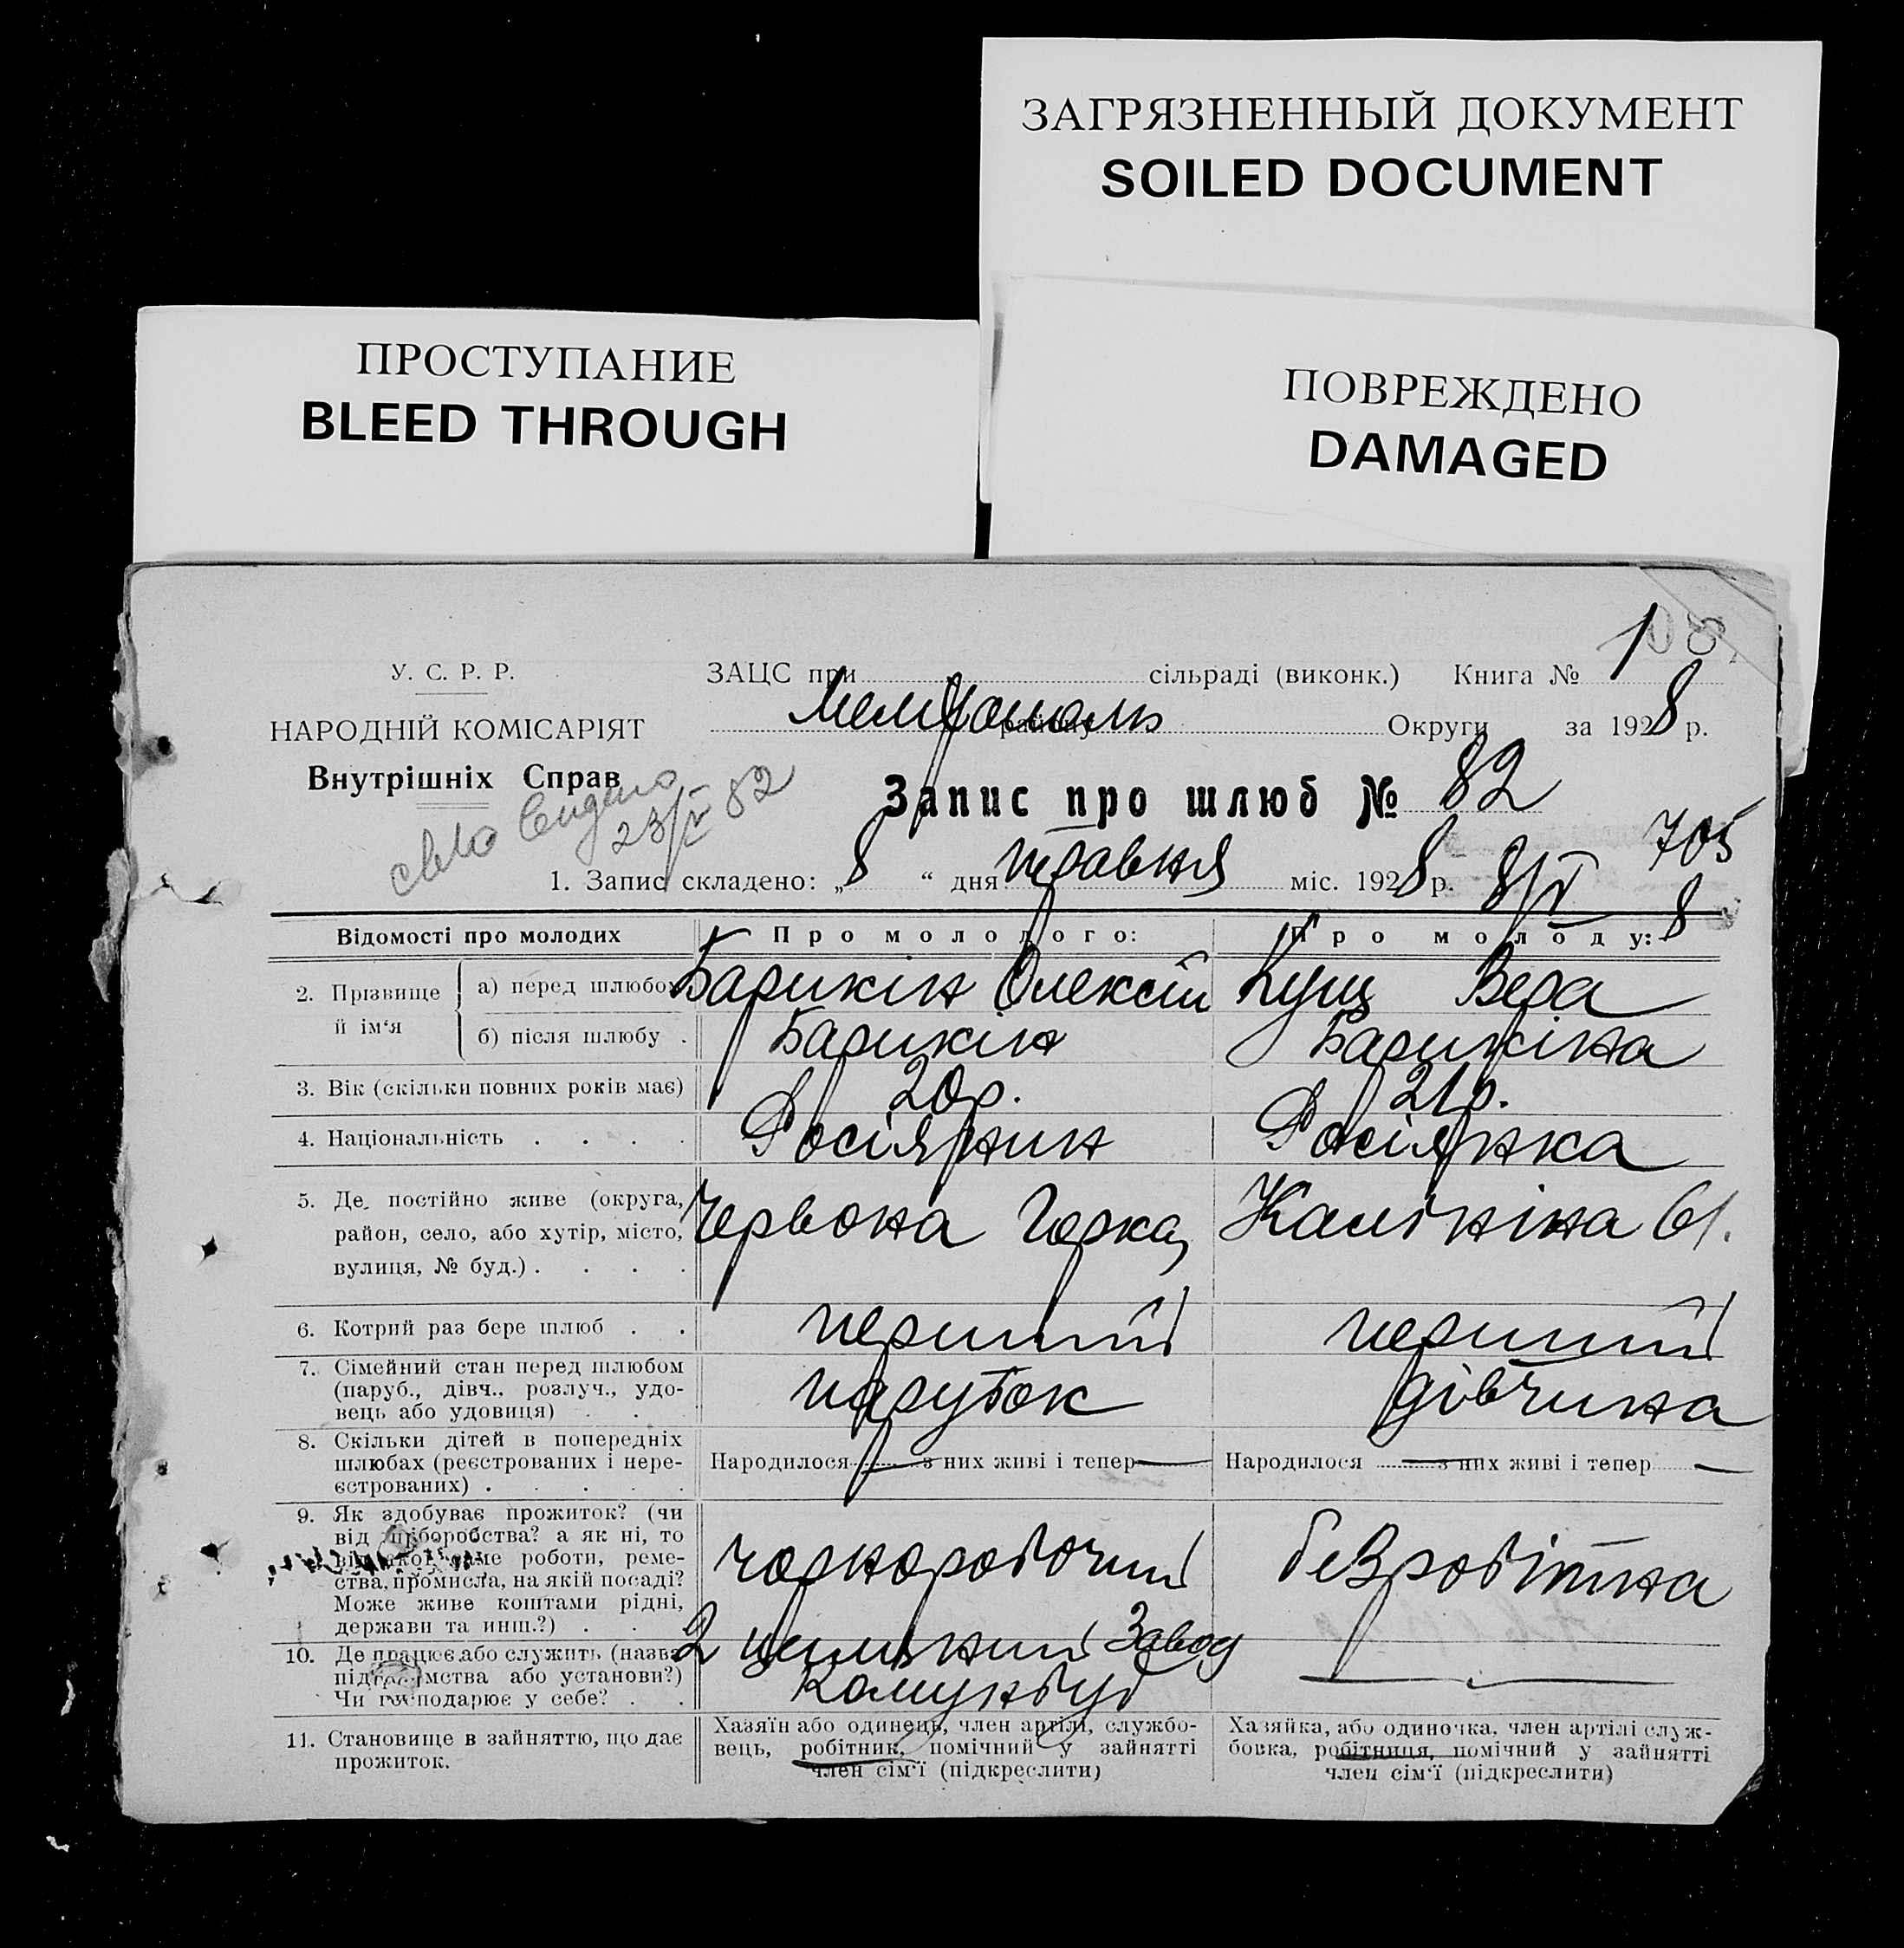 ЗАГРЯЗНЕННЫЙ ДОКУМЕНТ
SOILED DOCUMENT
ПРОСТУПАНИЕ
BLEED THROUGH
ПОВРЕЖДЕНО
DAMAGED
У. С. Р. Р.
НАРОДНІЙ КОМІСАРІЯТ
Внутрішніх Справ
23/V 82
ЗАЦС при сільраді (виконк.) Книга № 1
Мелітополь району Округи за 1928 р.
Запис про шлюб № 82
705
1. Запис складено: „8“ дня травня міс. 1928 р. 8/V
8
Відомості про молодих Про молодого: Про молоду:
2. Прізвище й ім‘я а) перед шлюбом Барикін Олексій Кущ Вера
б) після шлюбу . Барикін Барикіна
3. Вік (скільки повних років має) 20 р. 21 р.
4. Національність . . . . Росіянин Росіянка
5. Де постійно живе (округа,
район, село, або хутір, місто,
вулиця, № буд.) . . . . Червона Горка, Калініна 61.
6. Котрий раз бере шлюб . . перший перший
7. Сімейний стан перед шлюбом
(паруб., дівч., розлуч., удо-
вець або удовиця) . . парубок дівчина
8. Скільки дітей в попередніх
шлюбах (реєстрованих і нере-
єстрованих) . . . . . Народилося — з них живі і тепер — Народилося — з них живі і тепер —
9. Як здобуває прожиток? (чи
від хліборобства? а як ні, то
від якої саме роботи, реме-
ства, промисла, на якій посаді?
Може живе коштами рідні,
держави та инш.?) . . чорноробочий безробітна
10. Де працює або служить (назва
підприємства або установи?)
Чи господарює у себе? . . 2 Завод
Комунбуд —
11. Становище в зайняттю, що дає
прожиток.
Хазяїн або одинець, член артілі, службо-
вець, робітник, помічний у зайнятті
член сім‘ї (підкреслити)
Хазяйка, або одиночка, член артілі служ-
бовка, робітниця, помічний у зайнятті
член сім‘ї (підкреслити)